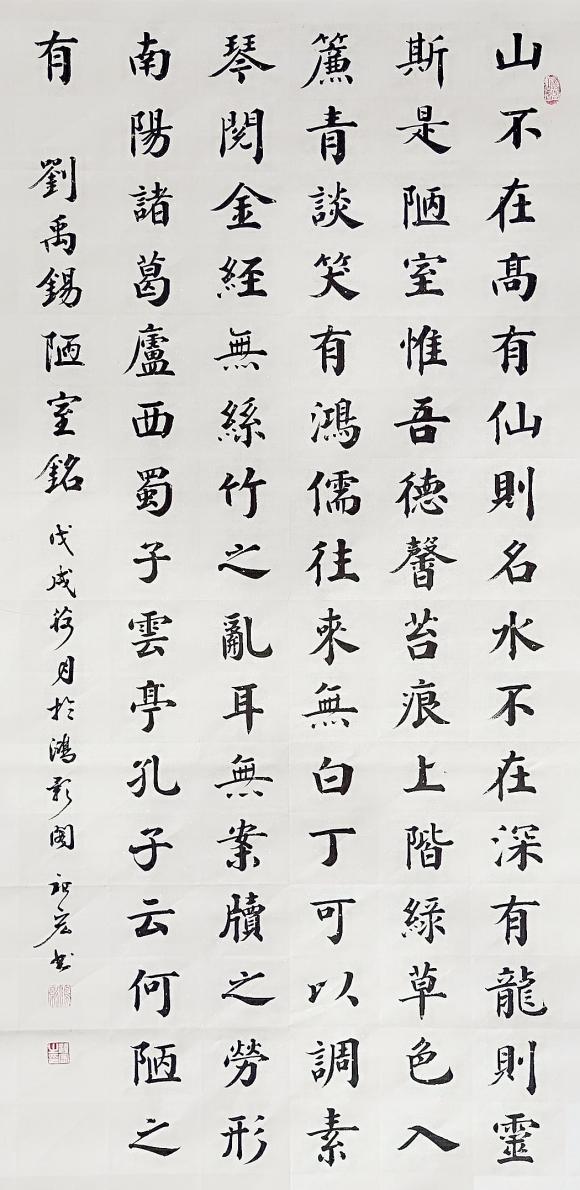 山不在髙有仙則名水不在深有龍則靈
斯是陋室惟吾德馨苔痕上階綠草色入
簾青談笑有鴻儒往來無白丁可以調素
琴閱金經無絲竹之亂耳無案牘之勞形
南陽諸葛廬西蜀子雲亭孔子云何陋之
有 劉禹錫陋室銘 戊戌荷月於鴻影閣 書